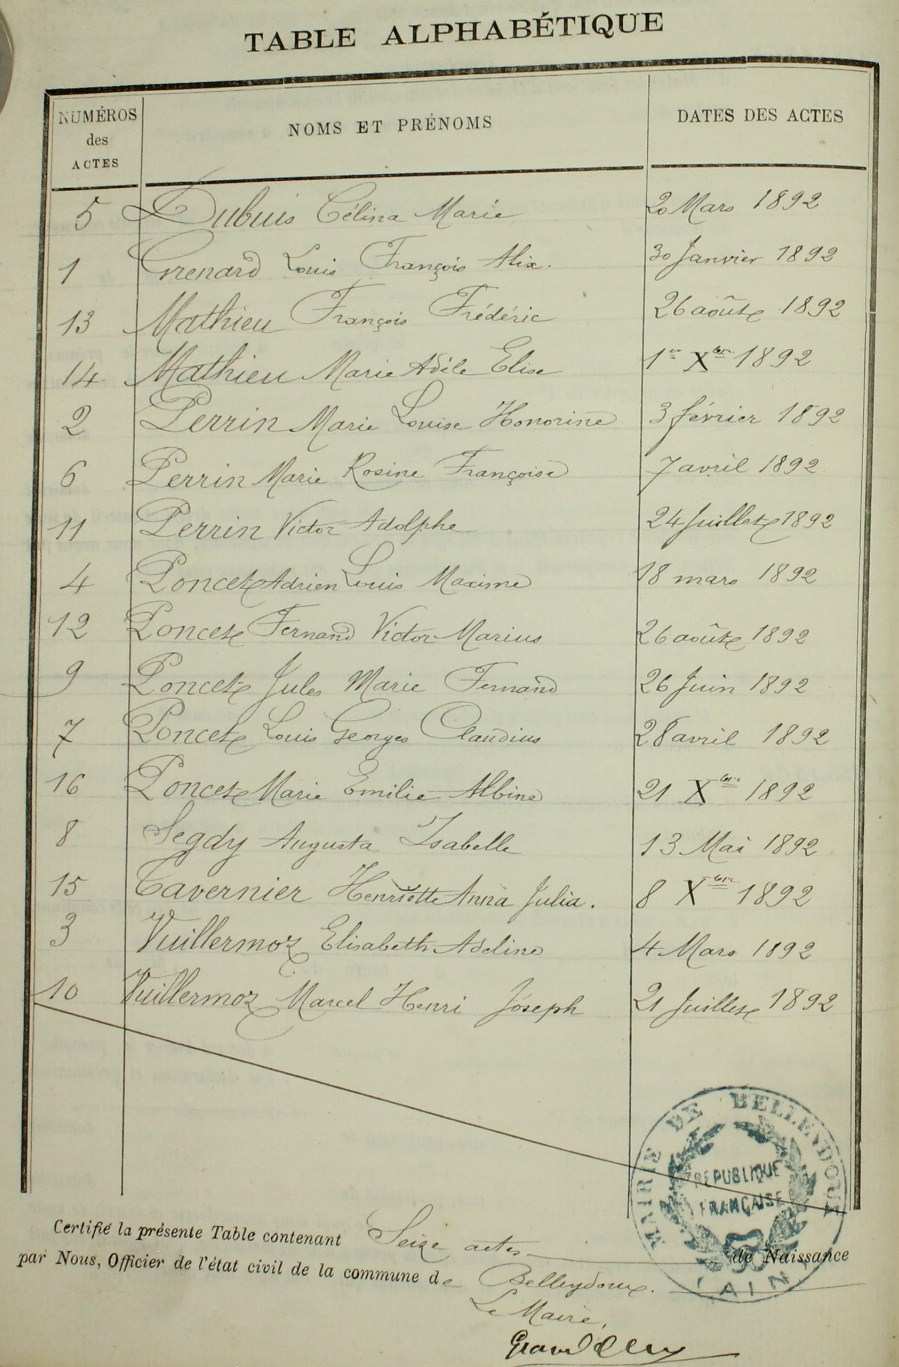 TABLE ALPHABÉTIQUE
NUMÉROS des ACTES NOMS ET PRÉNOMS DATES DES ACTES
5 Dubuis Célina Marie 20 Mars 1892
1 Grenard Louis François Alix. 30 Janvier 1892
13 Mathieu François Frédéric 26 août 1892
14 Mathieu Marie Adèle Elise 1er Xbre 1892
2 Perrin Marie Louise Honorine 3 février 1892
6 Perrin Marie Rosine Françoise 7 avril 1892
11 Perrin Victor Adolphe 24 Juillet 1892
4 Poncet Adrien Louis Maxime 18 mars 1892
12 Poncet Fernand Victor Marius 26 août 1892
9 Poncet Jules Marie Fernand 26 Juin 1892
7 Poncet Louis Georges Claudius 28 avril 1892
16 Poncet Marie Emilie Albine 21 Xbre 1892
8 Segdy Augusta Isabelle 13 Mai 1892
15 Tavernier Henriette Anna Julia. 8 Xbre 1892
3 Vuillermoz Elisabeth Adeline 4 Mars 1892
10 Vuillermoz Marcel Henri Joseph 21 Juillet 1892
MAIRIE DE BELLEYDOUX
RÉPUBLIQUE
FRANÇAISE
(AIN)
Certifié la présente Table contenant Seize actes de Naissance
par Nous, Officier de l'état civil de la commune de Belleydoux.
Le Maire,